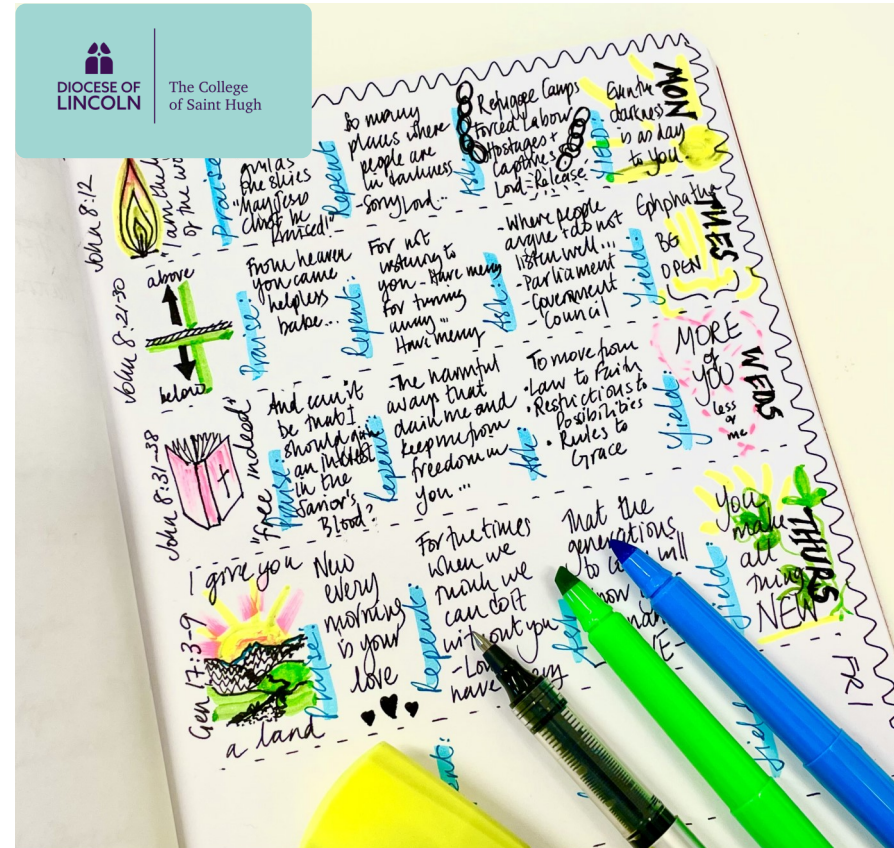 DIOCESE OF
LINCOLN
The College
of Saint Hugh
MON
John 8:12
"I am the
of the wo
Praise
the skies
"May Jesus
Christ be
Praised!"
Repent
So many
places where
people are
in darkness
Sorry Lord...
Refugee Camps
Forced Labour
Hostages +
Captives
Lord-Release
Even the
darkness
is as day
to you.
TUES
John 8:21-30
above
below
Praise:
From heaven
you came
helpless
babe...
Repent:
For not
listening to
you - Have mercy
For turning
away...
Have mercy
Ask:
- Where people
argue + do not
listen well...
- Parliament
- Government
- Council
Yield:
Ephphatha
BE
OPEN
WEDS
John 8:31-38
"Free indeed"
Praise:
And can it
be that I
should gain
an interest
in the
Savior's
Blood?
Repent:
- The harmful
ways that
drain me and
keep me from
freedom in
you...
Ask:
To move from
• Law to Faith
• Restrictions to
Possibilities
• Rules to
Grace
Yield:
MORE
of
YOU
less
of
me
THURS
Gen 17:3-9
I give you
a land
Praise:
New
every
morning
is your
love
Repent:
For the times
when we
think we
can do it
without you
- Lord
have mercy
That the
generations
to
will
know
Yield
You
make
all
things
NEW
FRI
ent:
Yield